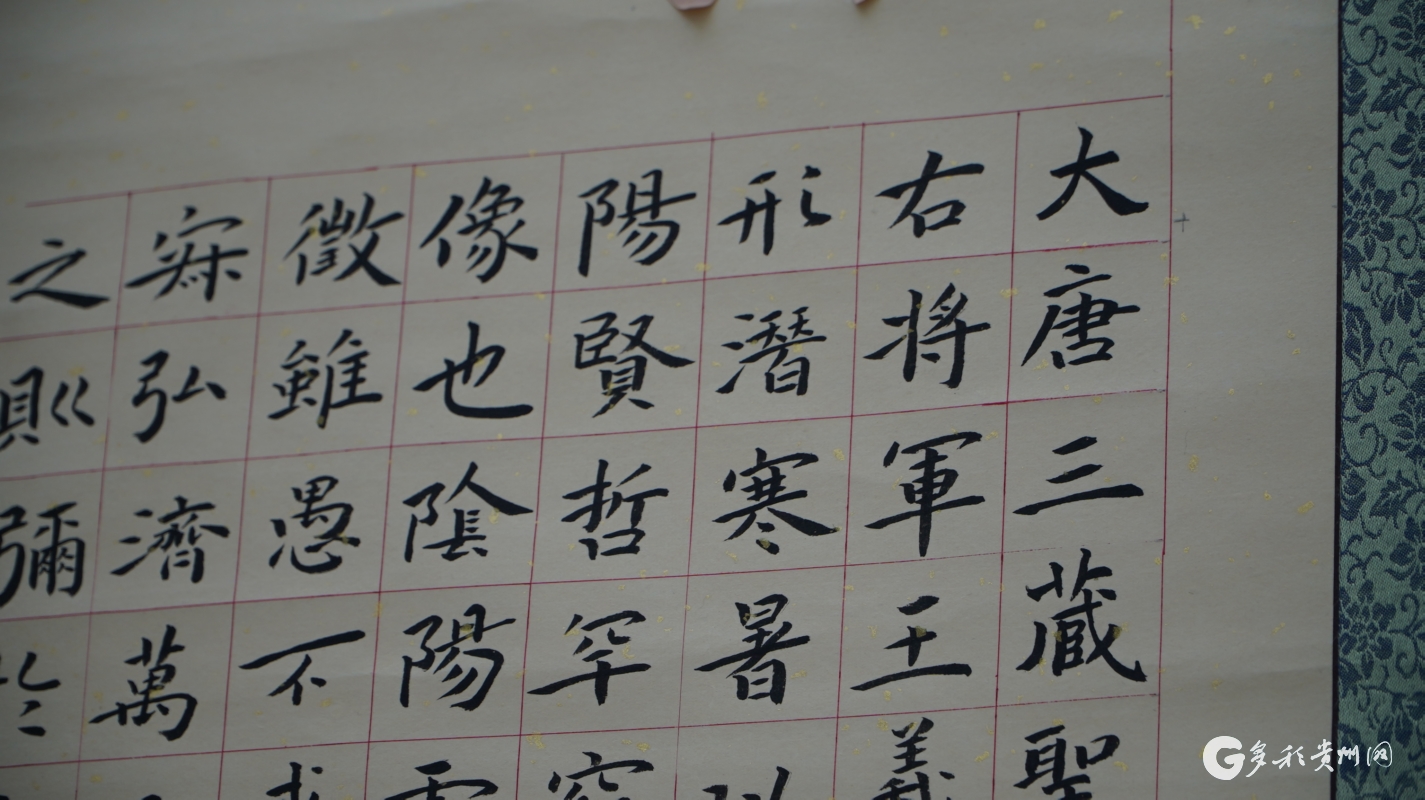 大唐三藏聖
右将軍王羲
形潛寒暑以
陽賢哲罕窮
像也陰陽
徵雖愚不
寂弘濟萬
之則彌於
多彩贵州网